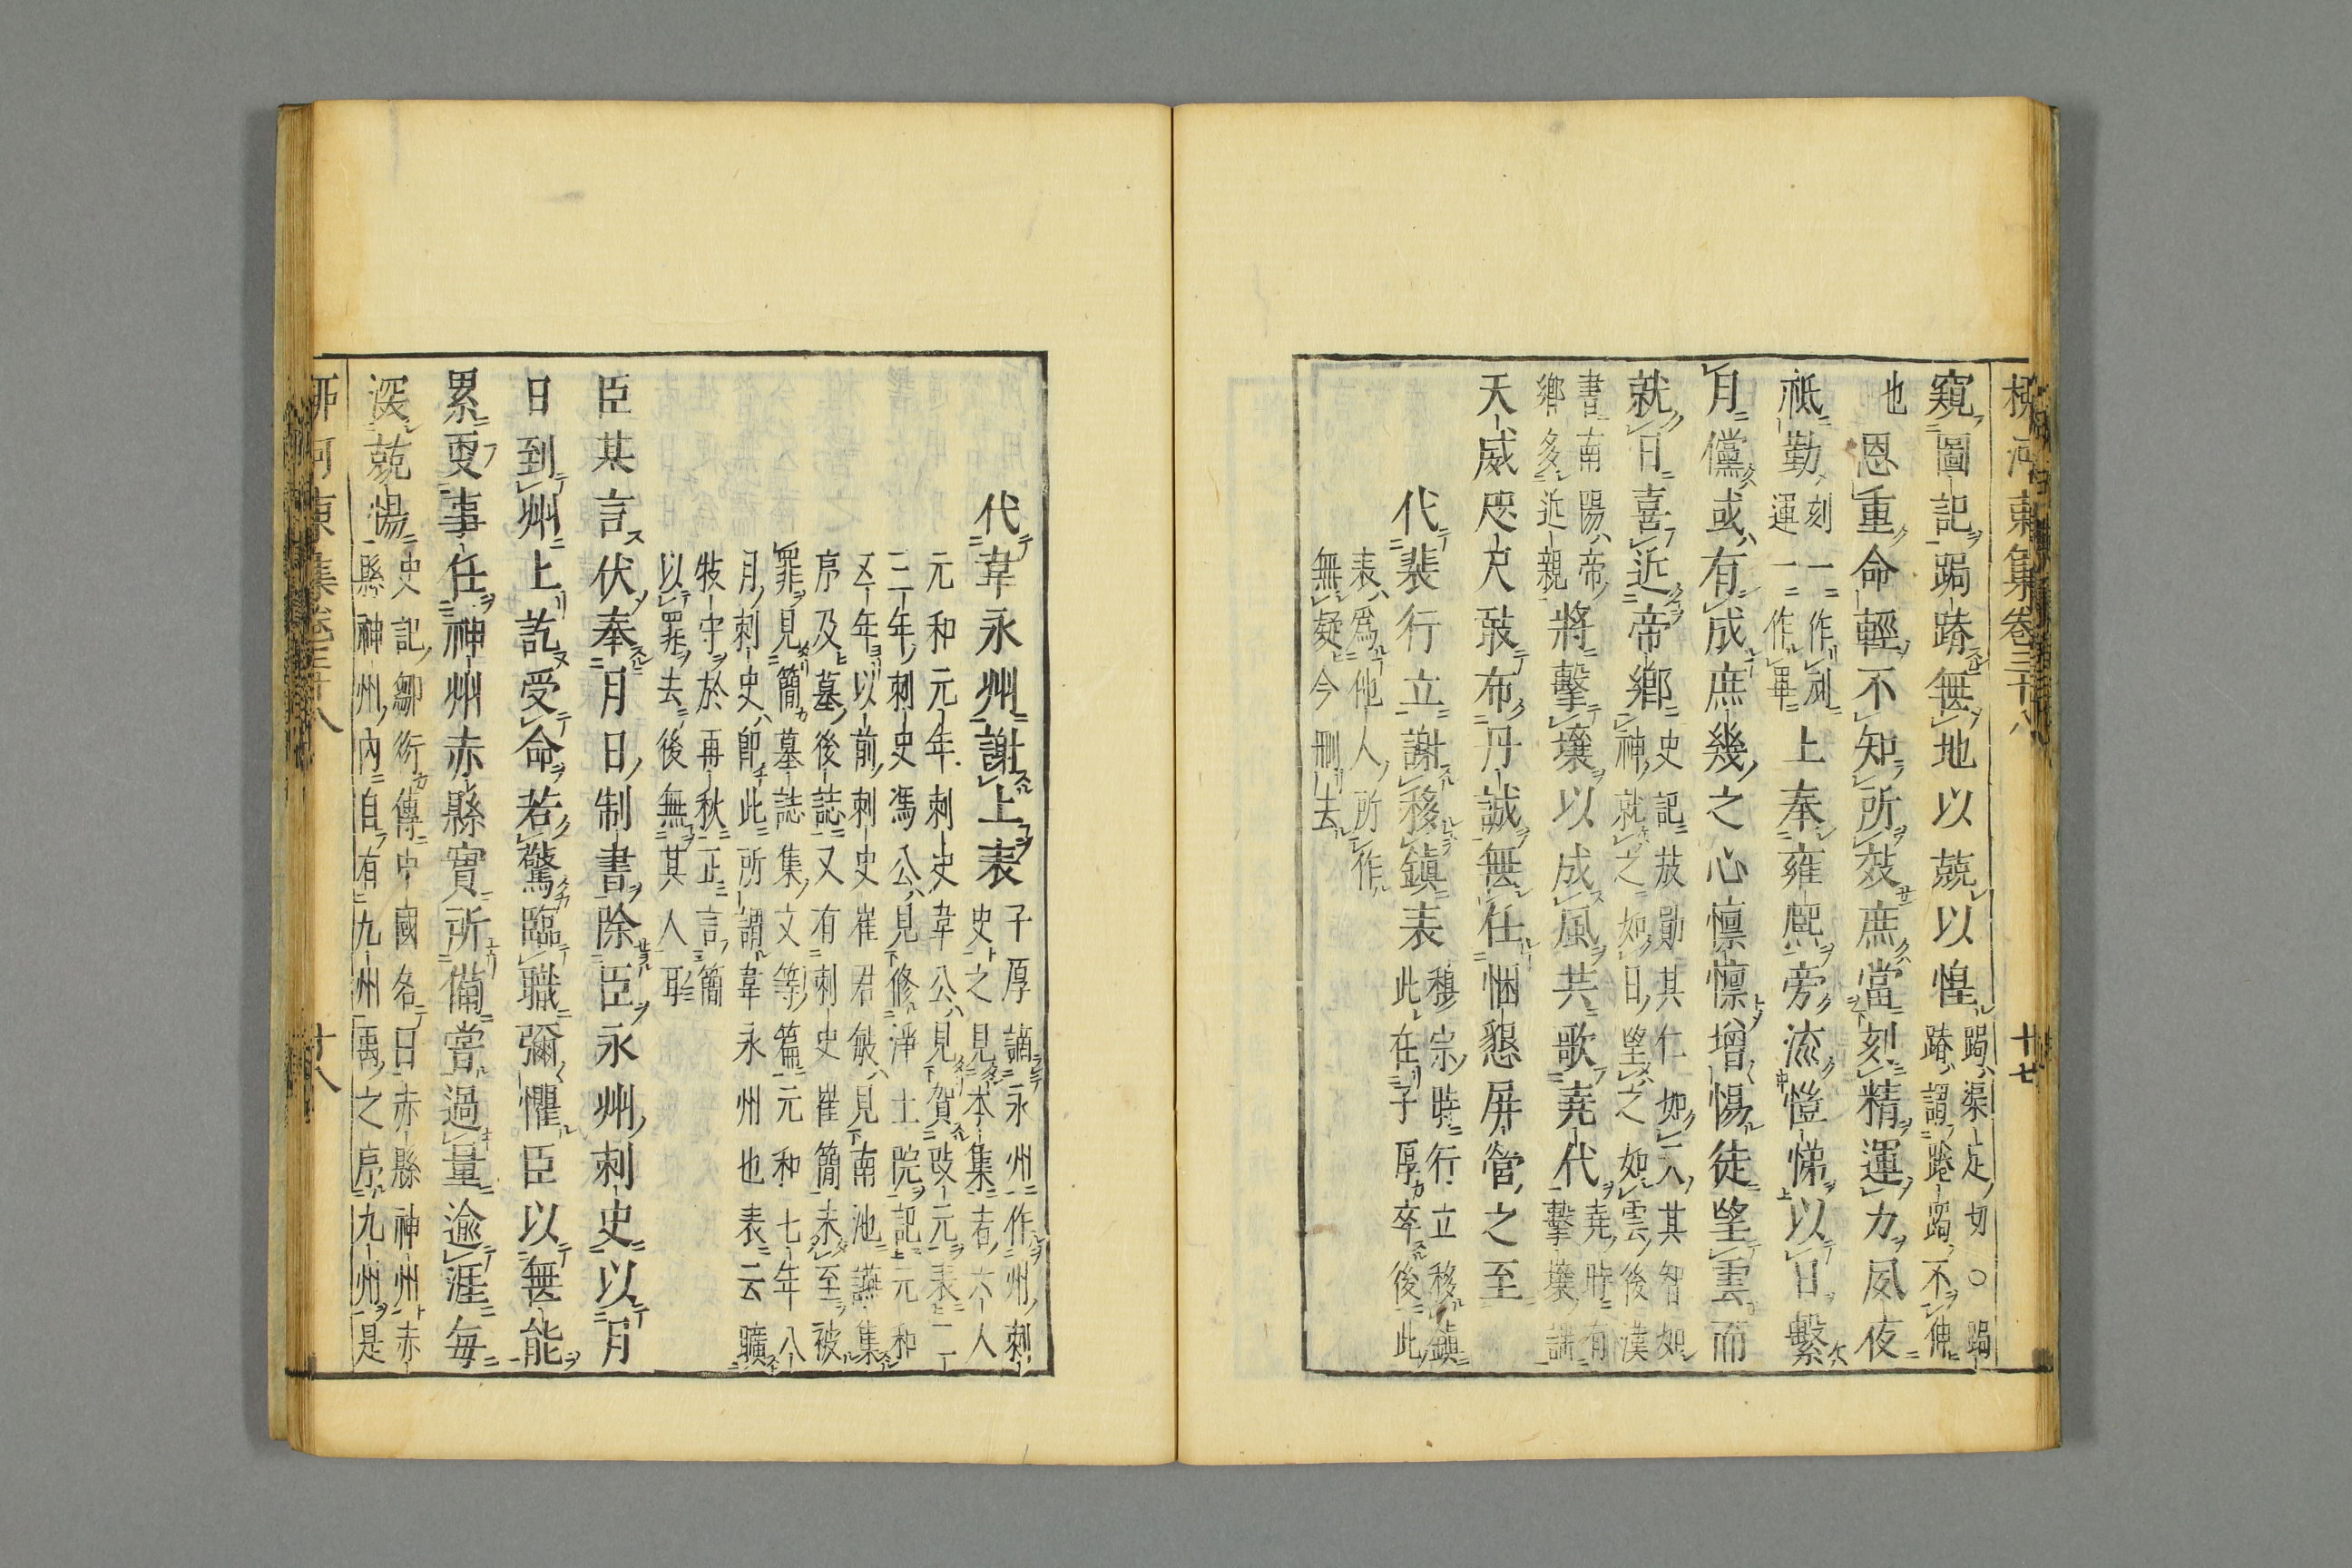 柳河東集卷三十八　十七
窺圖記跼蹐無地以兢以惶跼渠足切○跼
蹐謂踡跼不伸
也恩重命輕不知所效庶當刻精運力夙夜
祗勤刻一作剋
運一作畢上奉雍熈旁流愷悌以日繫
月儻或有成庶幾之心懍懍增惕徒望雲而
就日喜近帝鄉史記放勛其仁如天其智如
神就之如日望之如雲後漢
書南陽帝
鄉多近親將擊壤以成風共歌堯代堯時有
擊壤謌
天威咫尺敢布丹誠無任悃懇屏營之至
代裴行立謝移鎮表穆宗時行立移鎮
此在子厚卒後此
表爲他人所作
無疑今刪去
代韋永州謝上表子厚謫永州作州刺
史之見本集者六人
元和元年刺史韋公見賀改元表一二
三年刺史馮公見修淨土院記元和
五年以前刺史崔君敏見南池讌集
序及墓後誌又有刺史崔簡未至被
罪見簡墓誌集文等篇元和七年八
月刺史卽此所謂韋永州也表云曠
牧守於再秋正言簡
以罪去後無其人耳
臣某言伏奉月日制書除臣永州刺史以月
日到州上訖受命若驚臨職彌懼臣以無能
累更事任神州赤縣實所備嘗過量逾涯每
深兢惕史記鄒衍傳中國名曰赤縣神州赤
縣神州內自有九州禹之序九州是
柳河東集卷三十八　十八